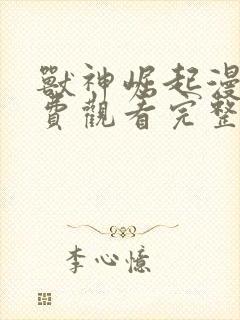 獸神崛起漫
費觀看完整
李心憶